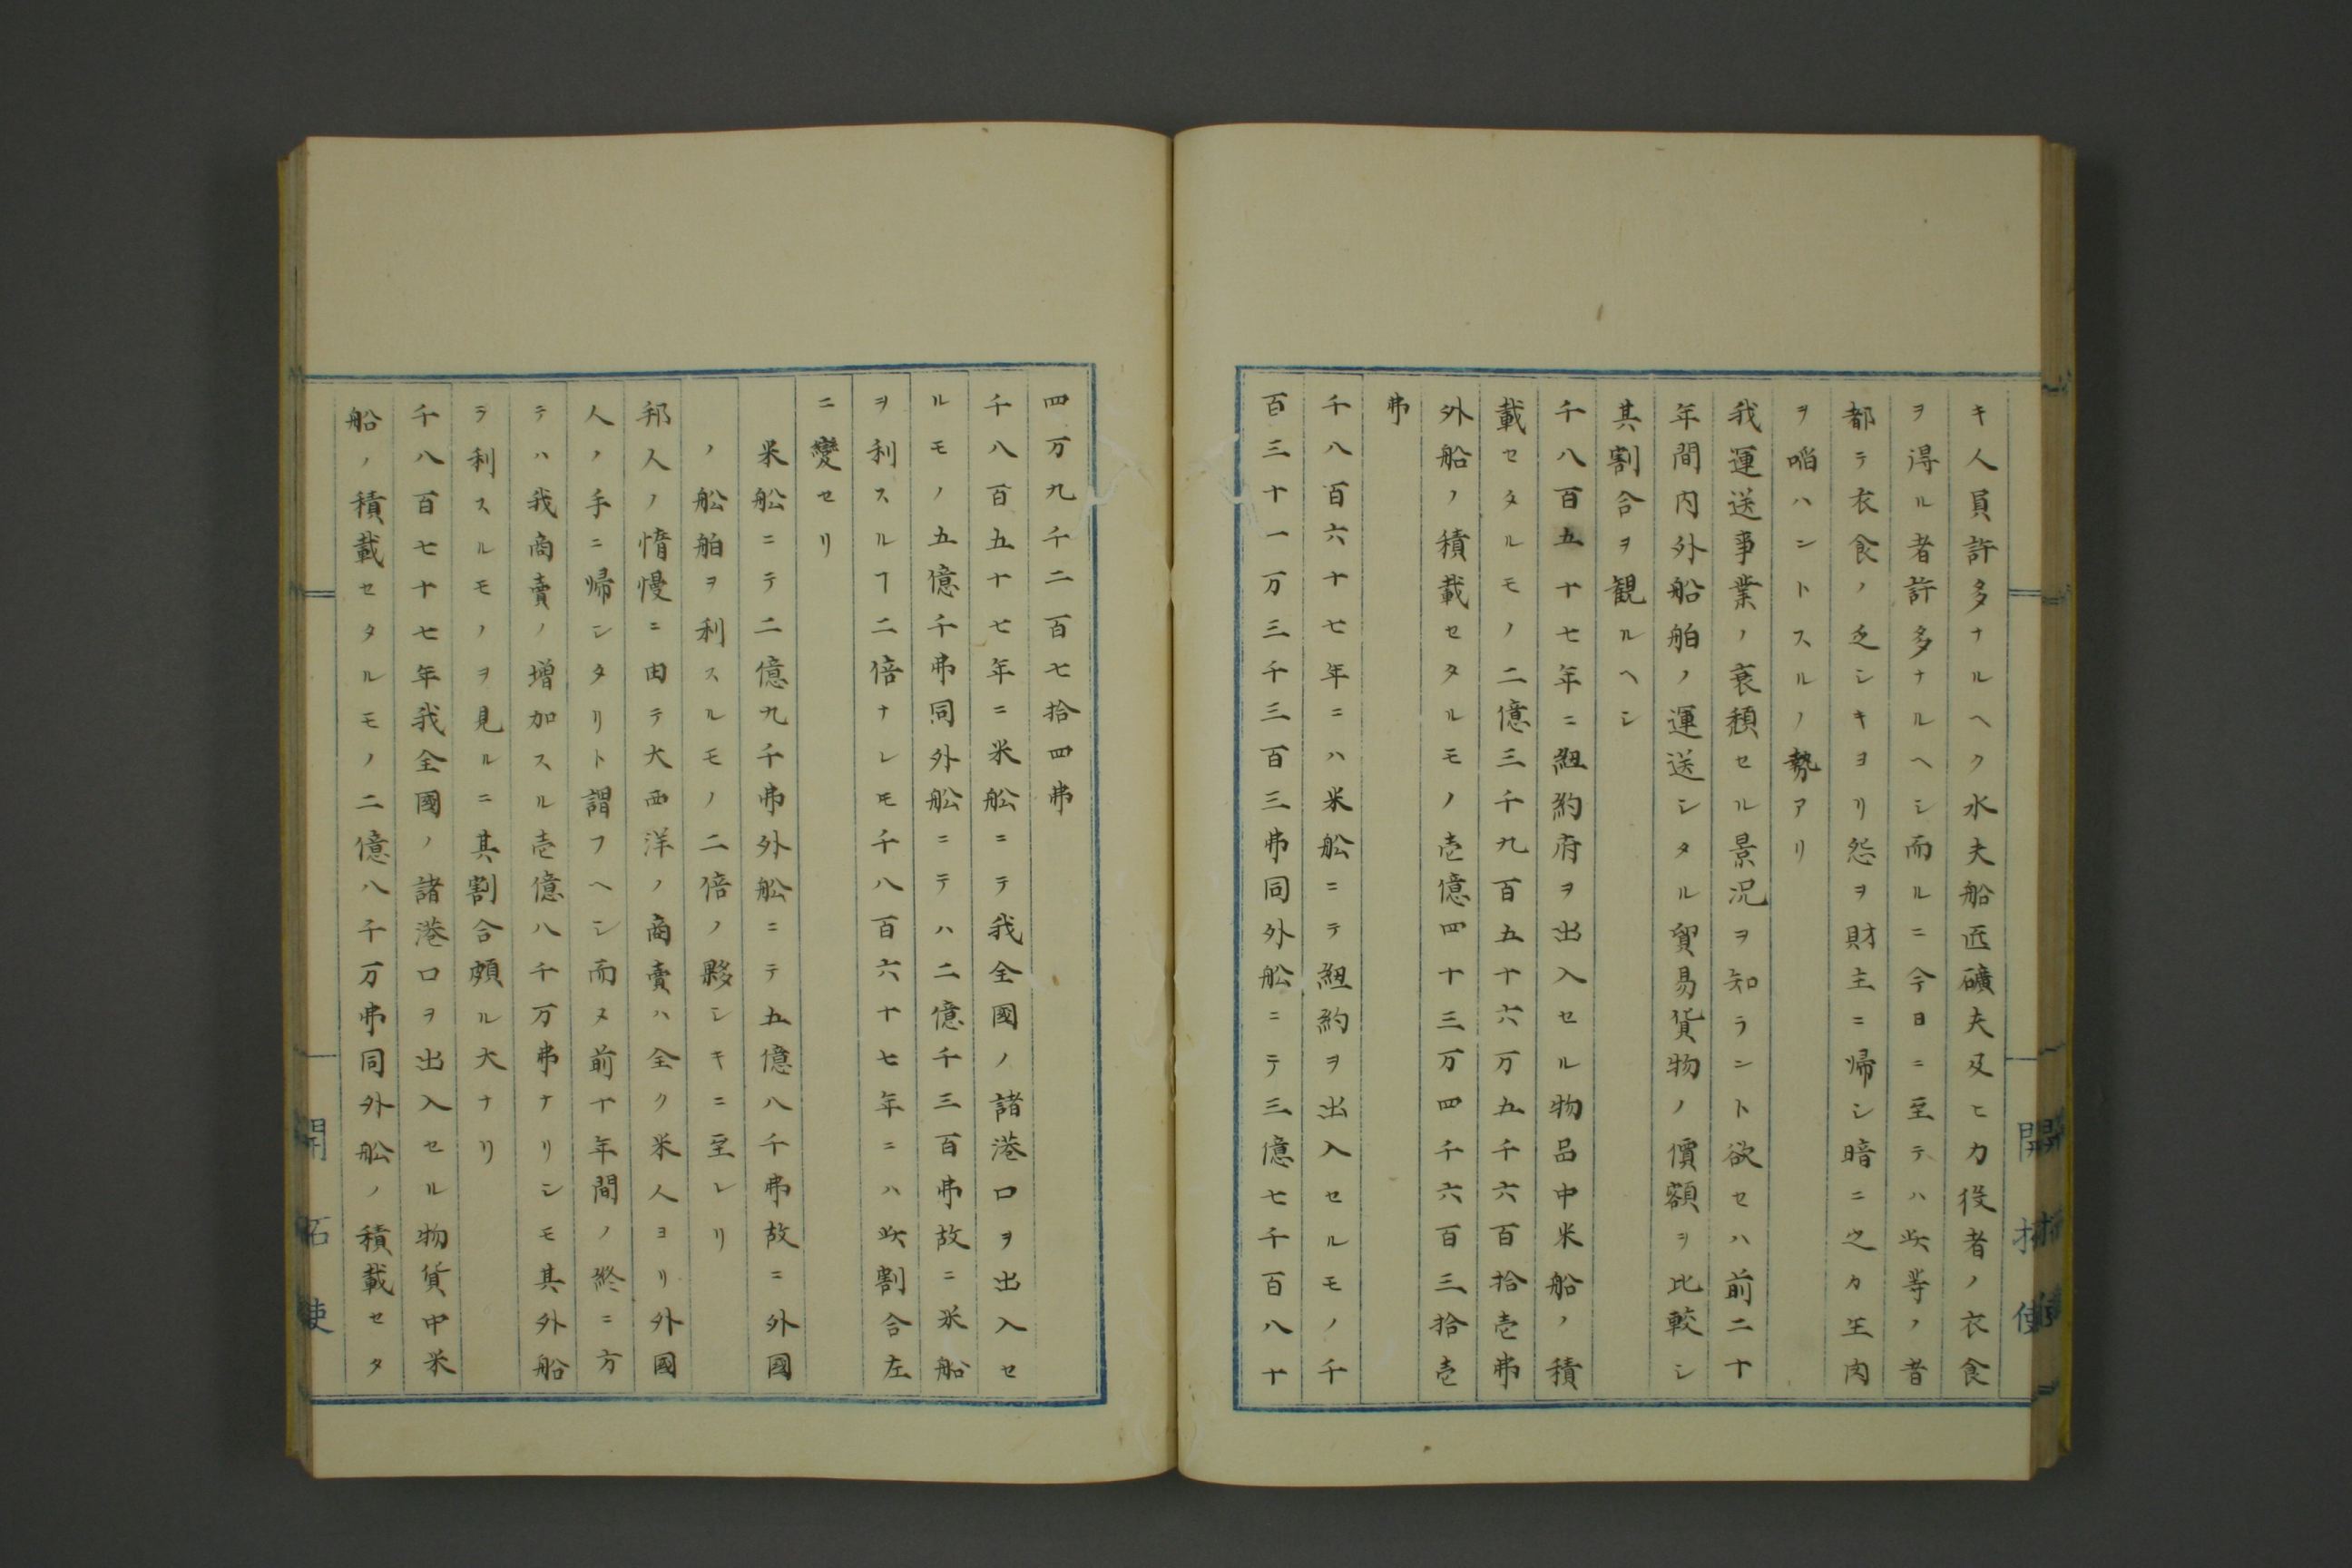 キ人員許多ナルヘク水夫船匠礦夫及ヒ力役者ノ衣食
ヲ得ル者許多ナルヘシ而ルニ今日ニ至テハ此等ノ者
都テ衣食ノ乏シキヨリ怨ヲ財主ニ帰シ暗ニ之カ生肉
ヲ啗ハントスルノ勢アリ
我運送事業ノ衰頽セル景况ヲ知ラント欲セハ前二十
年間内外船舶ノ運送シタル貿易貨物ノ價額ヲ比較シ
其割合ヲ観ルヘシ
千八百五十七年ニ紐約府ヲ出入セル物品中米船ノ積
載セタルモノ二億三千九百五十六万五千六百拾壱弗
外船ノ積載セタルモノ壱億四十三万四千六百三拾壱
弗
千八百六十七年ニハ米舩ニテ紐約ヲ出入セルモノ千
百三十一万三千三百三弗同外舩ニテ三億七千百八十
四万九千二百七拾四弗
千八百五十七年ニ米舩ニテ我全國ノ諸港口ヲ出入セ
ルモノ五億千弗同外舩ニテハ二億千三百弗故ニ米船
ヲ利スルヿ二倍ナレ𪜈千八百六十七年ニハ此割合左
ニ變セリ
米舩ニテ二億九千弗外舩ニテ五億八千弗故ニ外國
ノ舩舶ヲ利スルモノ二倍ノ夥シキニ至レリ
邦人ノ惰慢ニ由テ大西洋ノ商賣ハ全ク米人ヨリ外國
人ノ手ニ帰シタリト謂フヘシ而ヌ前十年間ノ終ニ方
テハ我商賣ノ増加スル壱億八千万弗ナリシモ其外船
ヲ利スルモノヲ見ルニ其割合頗ル大ナリ
千八百七十七年我全國ノ諸港口ヲ出入セル物貨中米
船ノ積載セタルモノ二億八千万弗同外舩ノ積載セタ
開拓使
開拓使